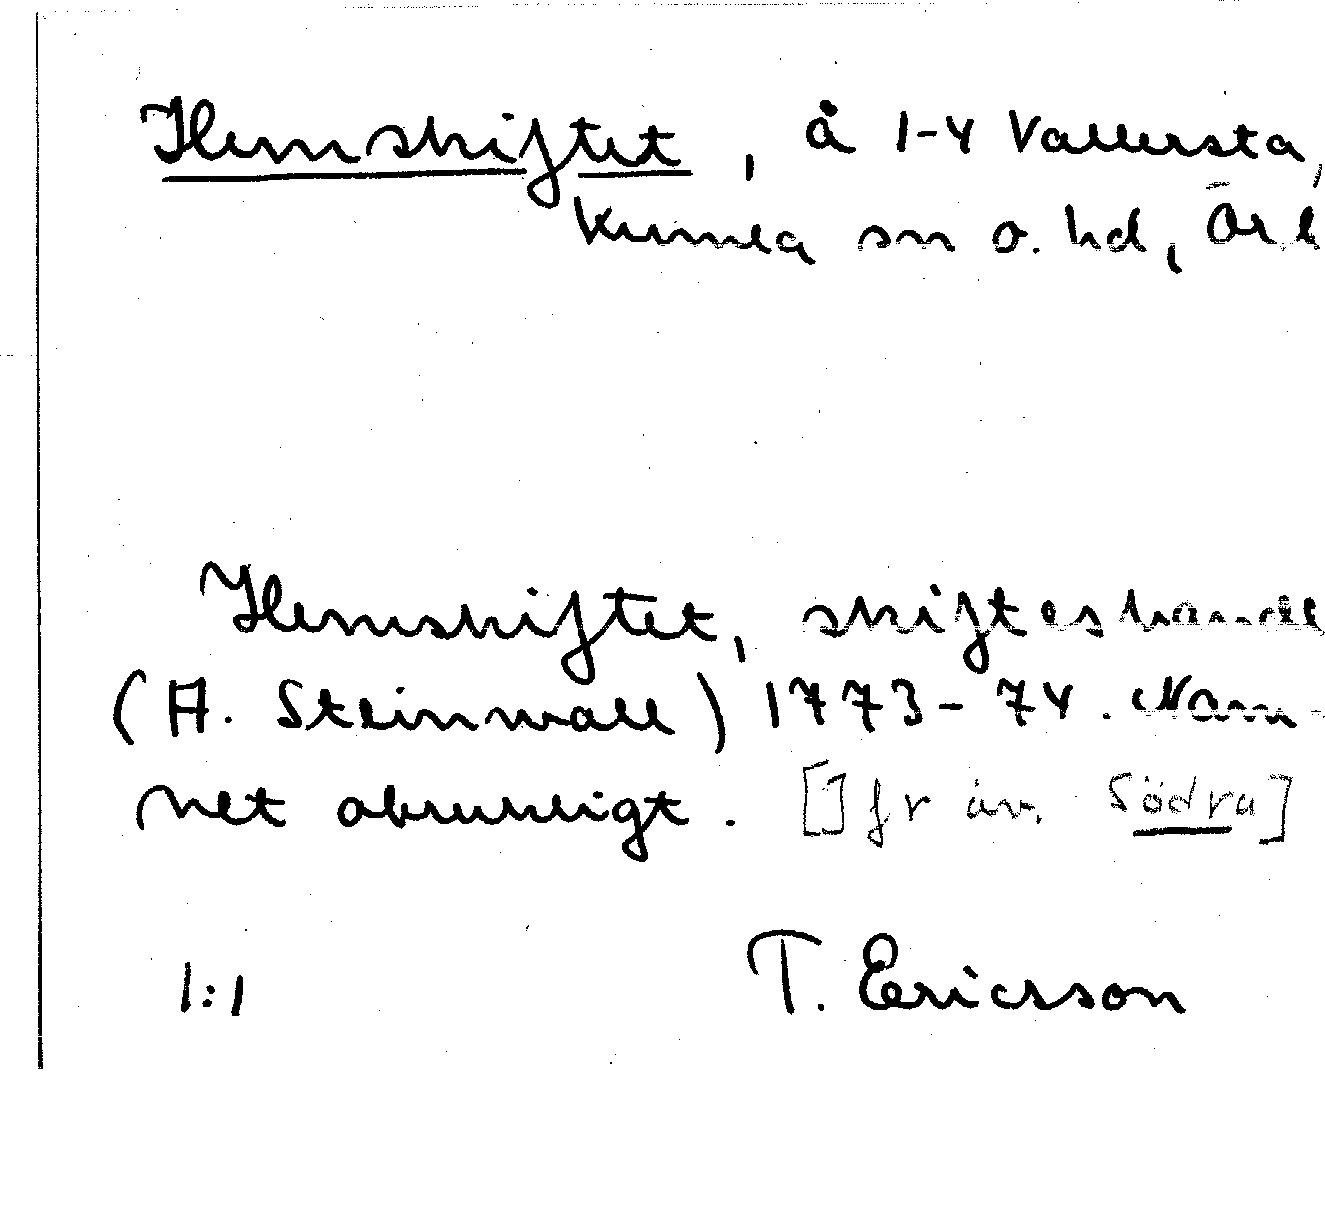 Hemskiftet, å 1-4 Vallersta,
Kumla sn o. hd, Ör l
Hemskiftet, skifteshandl
(A. Steinwall) 1773-74. Nam-
net obrukligt. [Jfr äv. Södra]
1:1 T. Ericson